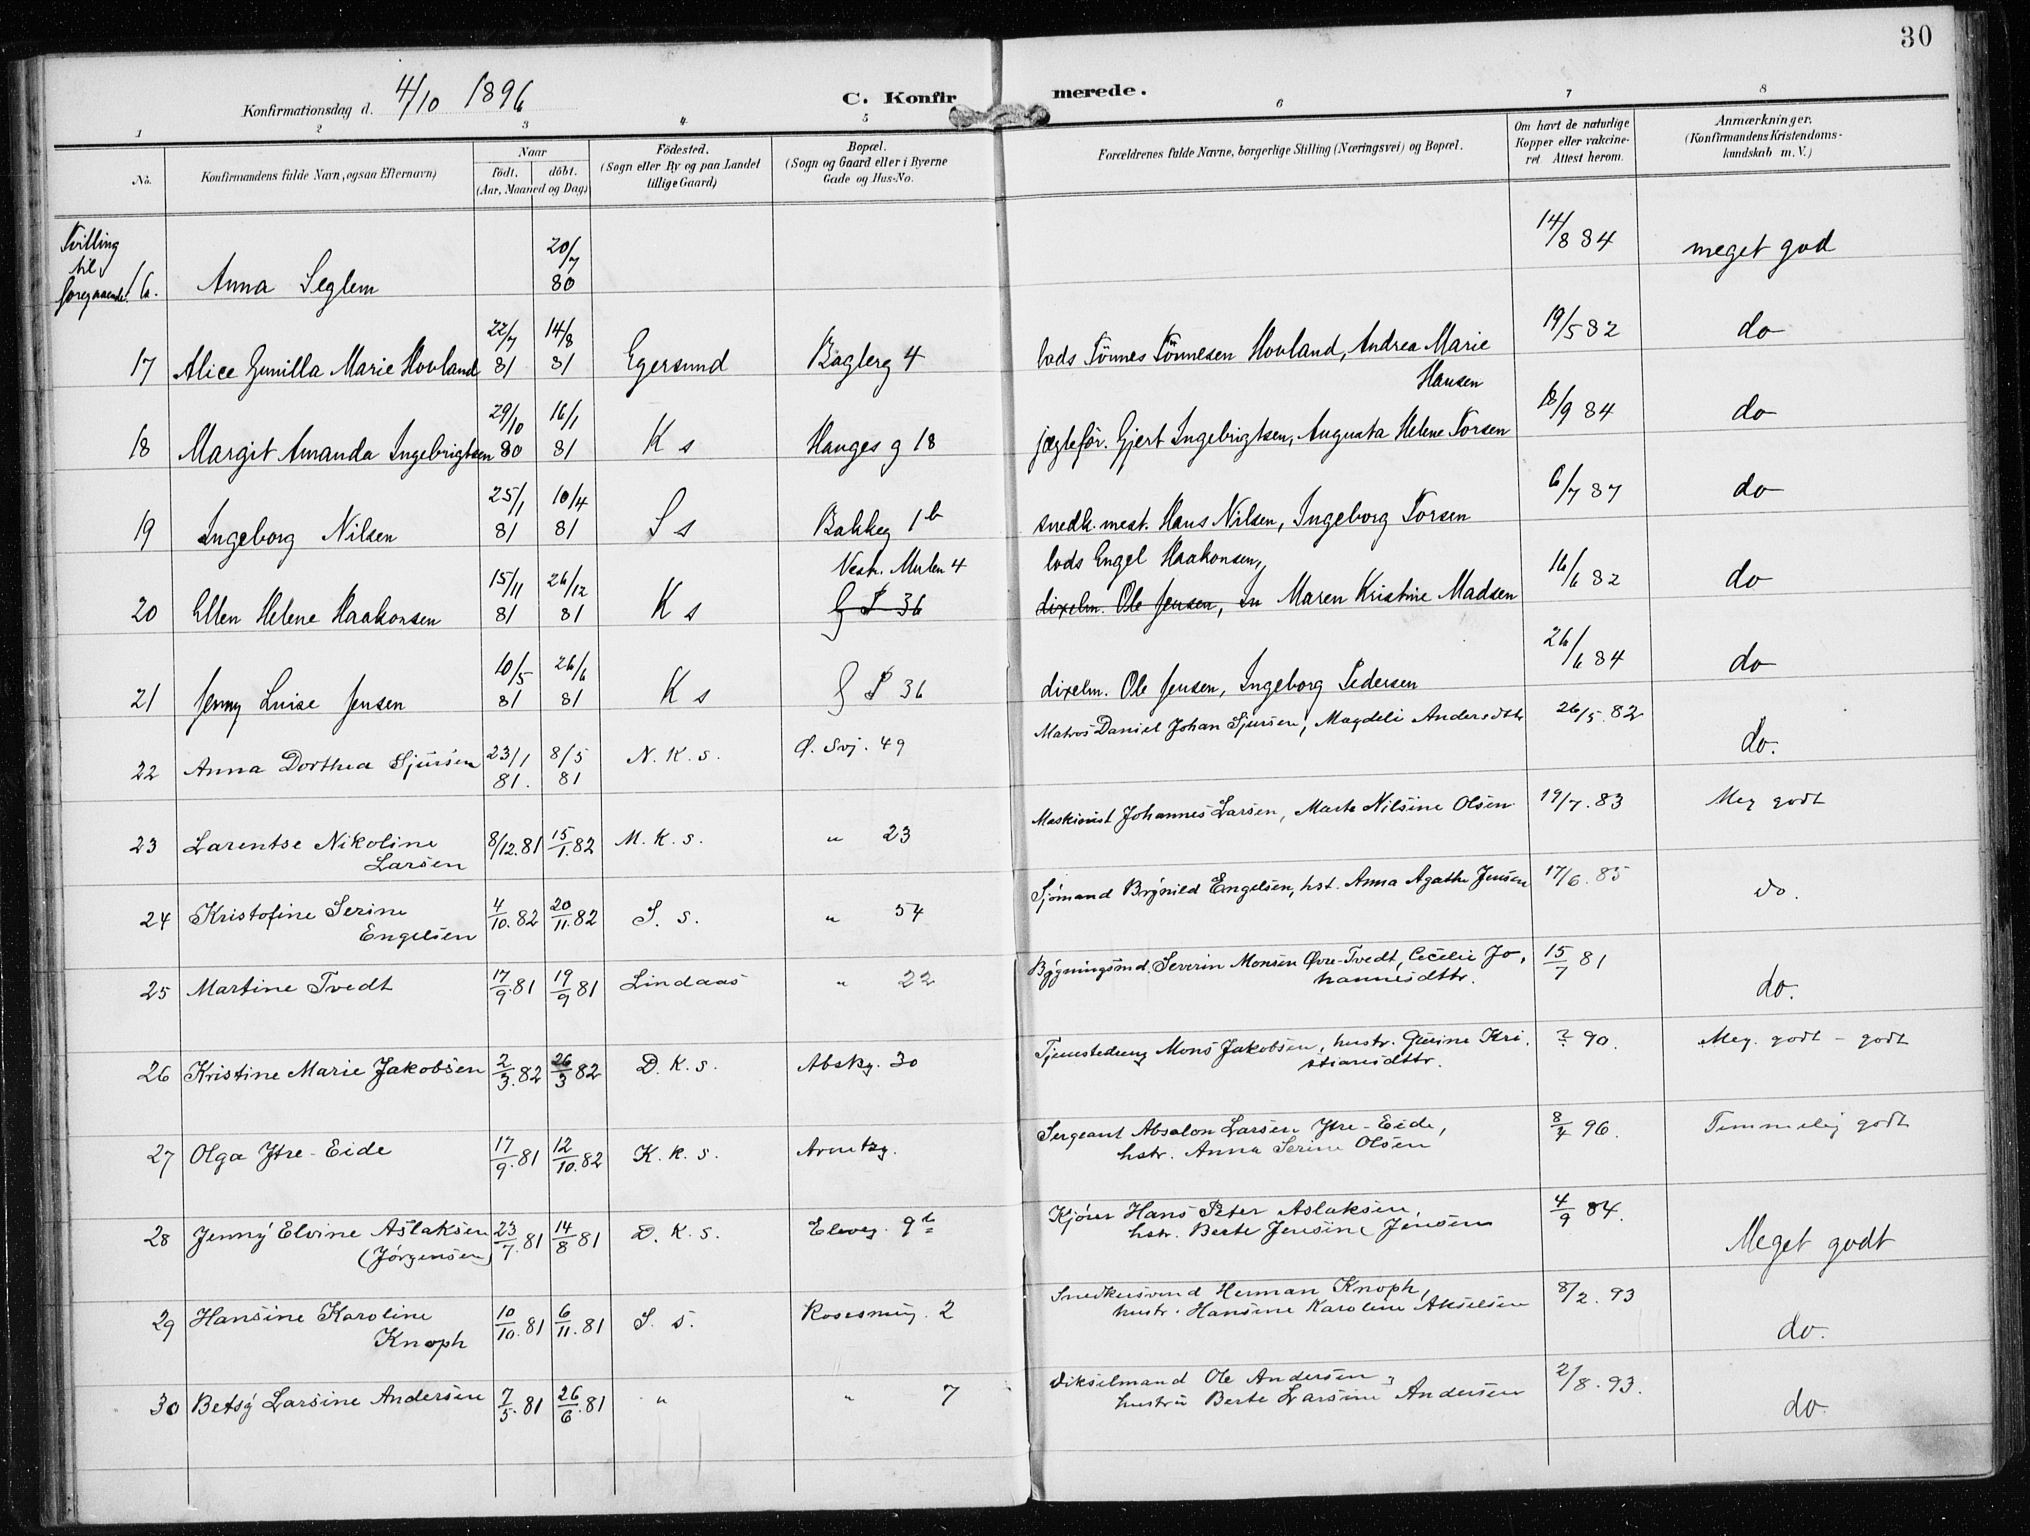 30
Konfirmationsdag d. 4/10 1896
C. Konfir merede.
1 2 3 4 5 6 7 8
No.
Konfirmandens fulde Navn, (ogsaa Efternavn)
Naar
födt. döbt.
(Aar, Maaned og Dag)
Födested.
(Sogn eller By og paa Landet
tillige Gaard)
Bopæl.
(Sogn og Gaard eller i Byerne
Gade og Hus-No.
Forældrenes fulde Navne, borgerlige Stilling (Næringsvei) og Bopæl.
Om havt de naturlige
Kopper eller vakcine-
ret. Attest herom.
Anmærkninger.
(Konfirmandens Kristendoms-
kundskab m. V.)
Tvilling
til
foregaaende. 16. Anna Seglem 20/7 80 14/8 84 meget god
17 Alice Gunilla Marie Hovland 22/7 81 14/8 81 Egersund Bagberg 4 lods Tönnes Tönnesen Hovland, Andrea Marie 19/5 82 do
Hansen
18 Margit Amanda Ingebrigtsen 29/10 80 16/1 81 K s Hauges g 18 jægtefør. Gjert Ingebrigtsen, Augusta Helene Torsen 18/9 84 do
19 Ingeborg Nilsen 25/1 81 10/4 81 S s Bakkeg 1b snedk. mest. Hans Nilsen, Ingeborg Torsen 6/7 87 do
Vestr. Murlen 4 lods Engel Haakonsen,
20 Ellen Helene Haakonsen 15/11 81 26/12 81 K s G P 36 dixelm. Ole Jensen, In Maren Kristine Madsen 16/6 82 do
21 Jenny Luise Jensen 10/5 81 26/6 81 K s G P 36 dixelm. Ole Jensen, Ingeborg Pedersen 26/6 84 do
22 Anna Dorthea Sjursen 23/1 81. 8/5 81 N. K. s. Ø. Svj. 49 Matros Daniel Johan Sjursen, Magdeli Andersdtr 26/5. 82 do.
23 Larentse Nikoline
Larsen 8/12. 81 15/1. 82 M. K. s. " 23 Maskinist Johannes Larsen, Marta Nilsine Olsen 19/7. 83 Meg godt
24 Kristofine Serine
Engelsen 4/10. 82 20/11. 82 S. s. " 54 Sjømand Brynild Engelsen, hst. Anna Agathe Jensen 17/6. 85 do.
25 Martine Tvedt 17/9. 81 19/9 81 Lindaas " 22 Bygningsmd. Severin Monsen Øvre-Tvedt, Cecelie Jo,
hannesdttr. 15/7 81 do.
26 Kristine Marie Jakobsen 2/3. 82 26/3 82 D. K. s. Abskg. 30 Mons Jakobsen, hustr. Gurine Kri,
stiansdttr. ? 90. Meg. godt - godt
27 Olga Ytre-Eide 17/9. 81 12/10. 82 K. K. s. Sergeant Absalon Larsen Ytre-Eide,
hstr. Anna Serine Olsen 8/4 96. Temmelig godt
28 Jenny Elvine Aslaksen
(Jörgensen) 23/7. 81 14/8 81 D. K. s. Eleveg. 9b Kjører Hans Peter Aslaksen,
hstr. Berte Jensine Jensen 4/9 84. Meget godt
29 Hansine Karoline
Knoph 10/10. 81 6/11. 81 S. s. Rosesmug. 2 Snedkersvend Herman Knoph,
hustr. Hansine Karoline Akselsen 8/2. 93 do.
30 Betsy Larsine Andersen 7/5. 81 26/6. 81 " " 7 Dikselmand Ole Andersen,
hustru Berte Larsine Andersen 2/8. 93. do.